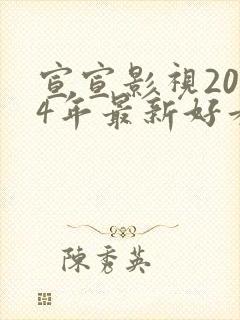 宣宣影視20
4年最新好
陳秀英